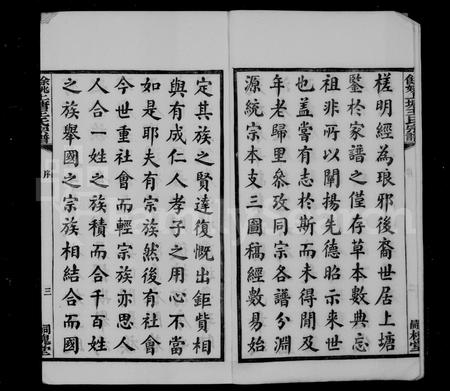 槎明經為琅邪後裔世居上塘
鑒於家譜之僅存草本數典忘
祖非所以闡揚先德昭示來世
嘗有志於斯而未得閒及
年老歸里叅攷同宗各譜分淵
源統宗本支三圖稿經數易始
定其族之賢達復慨出鉅貲相
與有成仁人孝子之用心不當
如是耶夫有宗族然後有社會
今世重社會而輕宗族亦思人
人合一姓之族積而合千百姓
之族舉國之宗族相結合而國
序
三